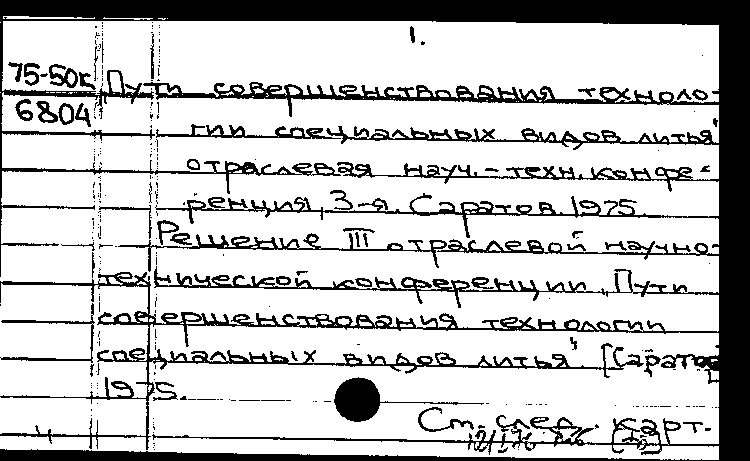 1.
75-50к „Пути совершенствования техноло-
6804 гии специальных видов литья"
отраслевая науч.-техн. конфе-
ренция, 3-я. Саратов. 1975.
Решение III отраслевой научно-
технической конференции „Пути
совершенствования технологии
специальных видов литья". [Саратов
1975.
См. след. карт.